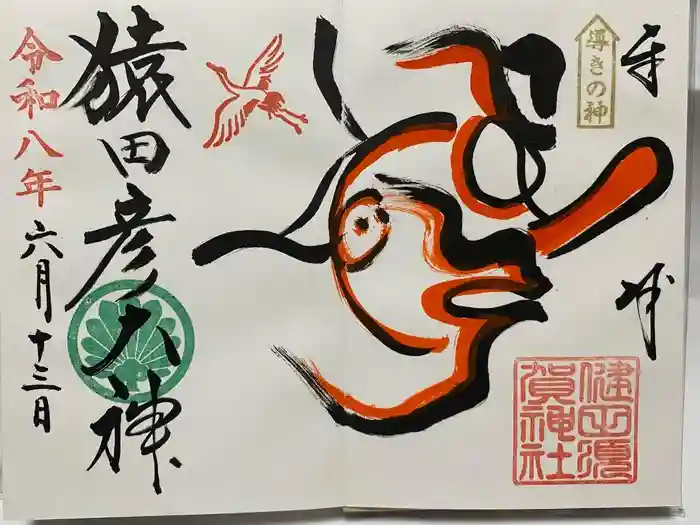 奉拝
導きの神
健田須
賀神社
猿田彦大神
令和八年六月十三日